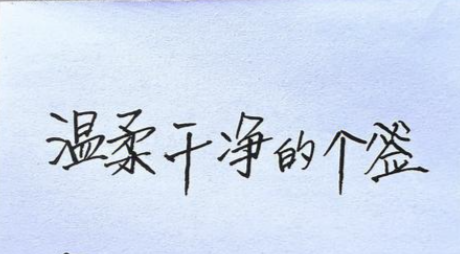 温柔干净的个签